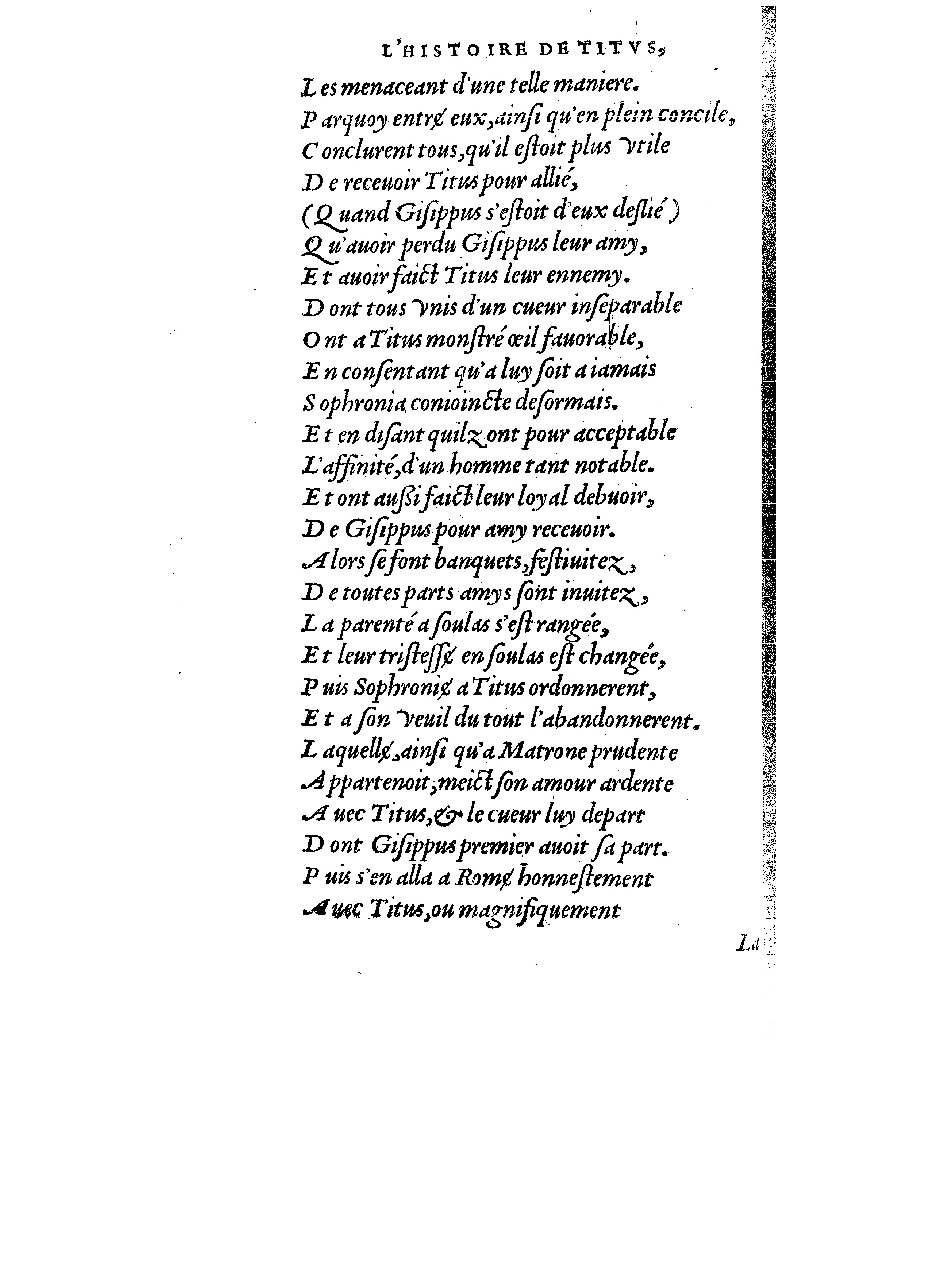 L'HISTOIRE DE TITVS,
Les menaceant d'une telle maniere.
Parquoy entrɇ eux, ainſi qu'en plein concile,
Conclurent tous, qu'il eſtoit plus vtile
De receuoir Titus pour allié,
(Quand Giſippus s'eſtoit d'eux deſlié)
Qu'auoir perdu Giſippus leur amy,
Et auoir faict Titus leur ennemy.
Dont tous vnis d'un cueur inſeparable
Ont a Titus monſtré œil fauorable,
En conſentant qu'a luy ſoit a iamais
Sophronia conioincte deſormais.
Et en diſant quilz ont pour acceptable
L'affinité, d'un homme tant notable.
Et ont auſſi faict leur loyal debuoir,
De Giſippus pour amy receuoir.
Alors ſe font banquets, feſtiuitez,
De toutes parts amys ſont inuitez,
La parenté a ſoulas s'eſt rangée,
Et leur triſteſſɇ en ſoulas eſt changée,
Puis Sophroniɇ a Titus ordonnerent,
Et a ſon veuil du tout l'abandonnerent.
Laquellɇ, ainſi qu'a Matrone prudente
Appartenoit, meict ſon amour ardente
Auec Titus, & le cueur luy depart
Dont Giſippus premier auoit ſa part.
Puis s'en alla a Romɇ honneſtement
Auec Titus, ou magnifiquement
La